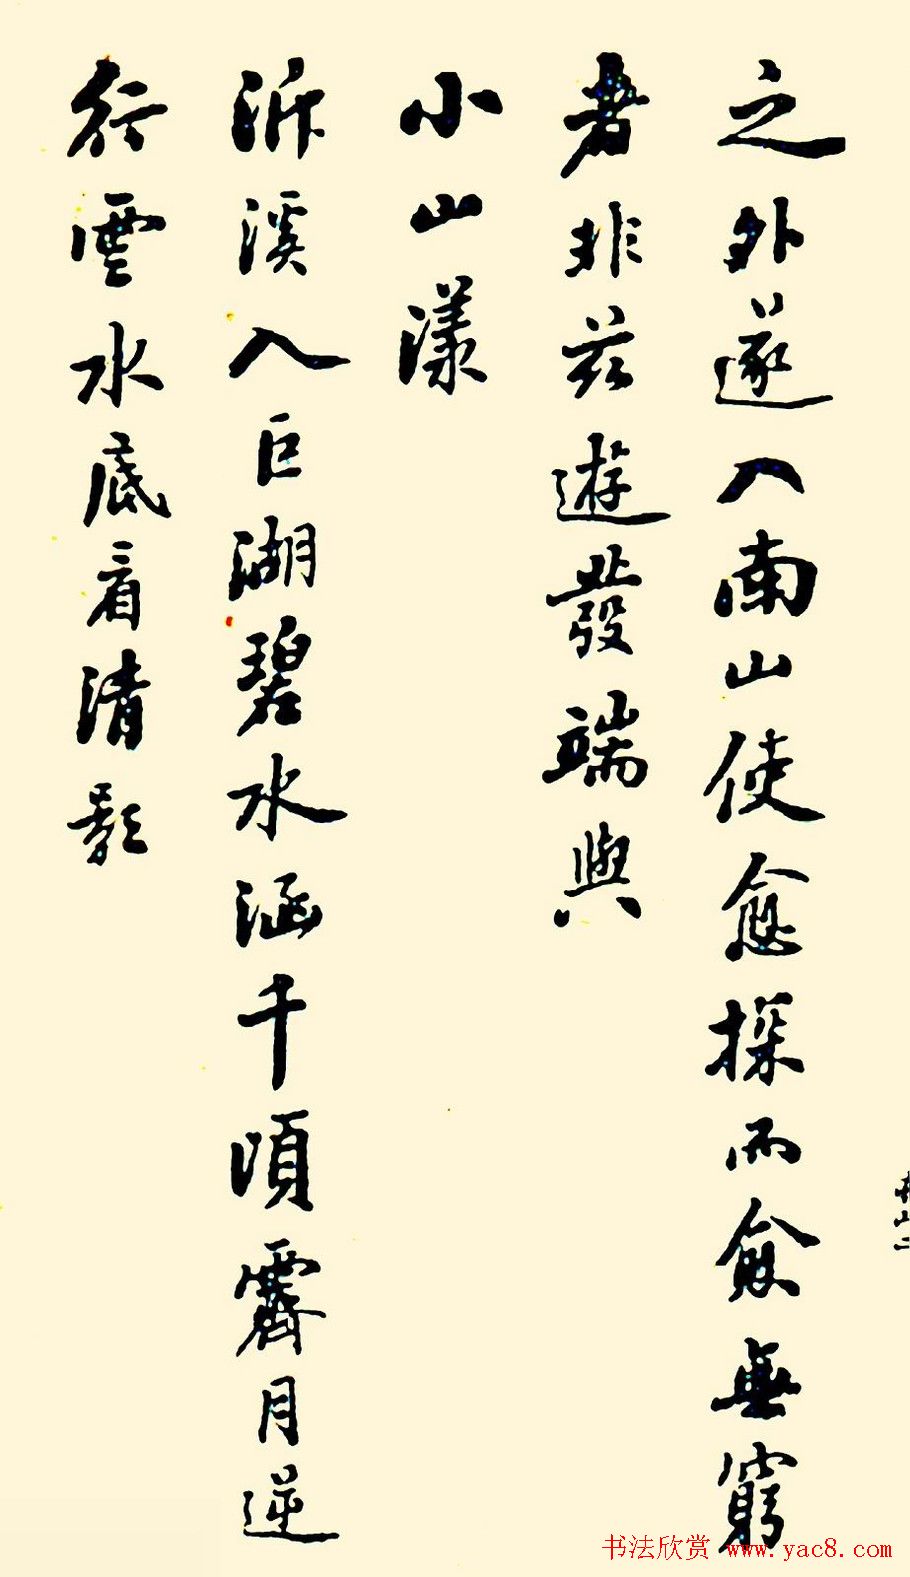 之外遂入南山使愈探而愈無窮
者非茲遊發端與
小山漾
泝溪入巨湖碧水涵千頃霽月逆
行雲水底看清影
書法欣赏 www.yac8.com